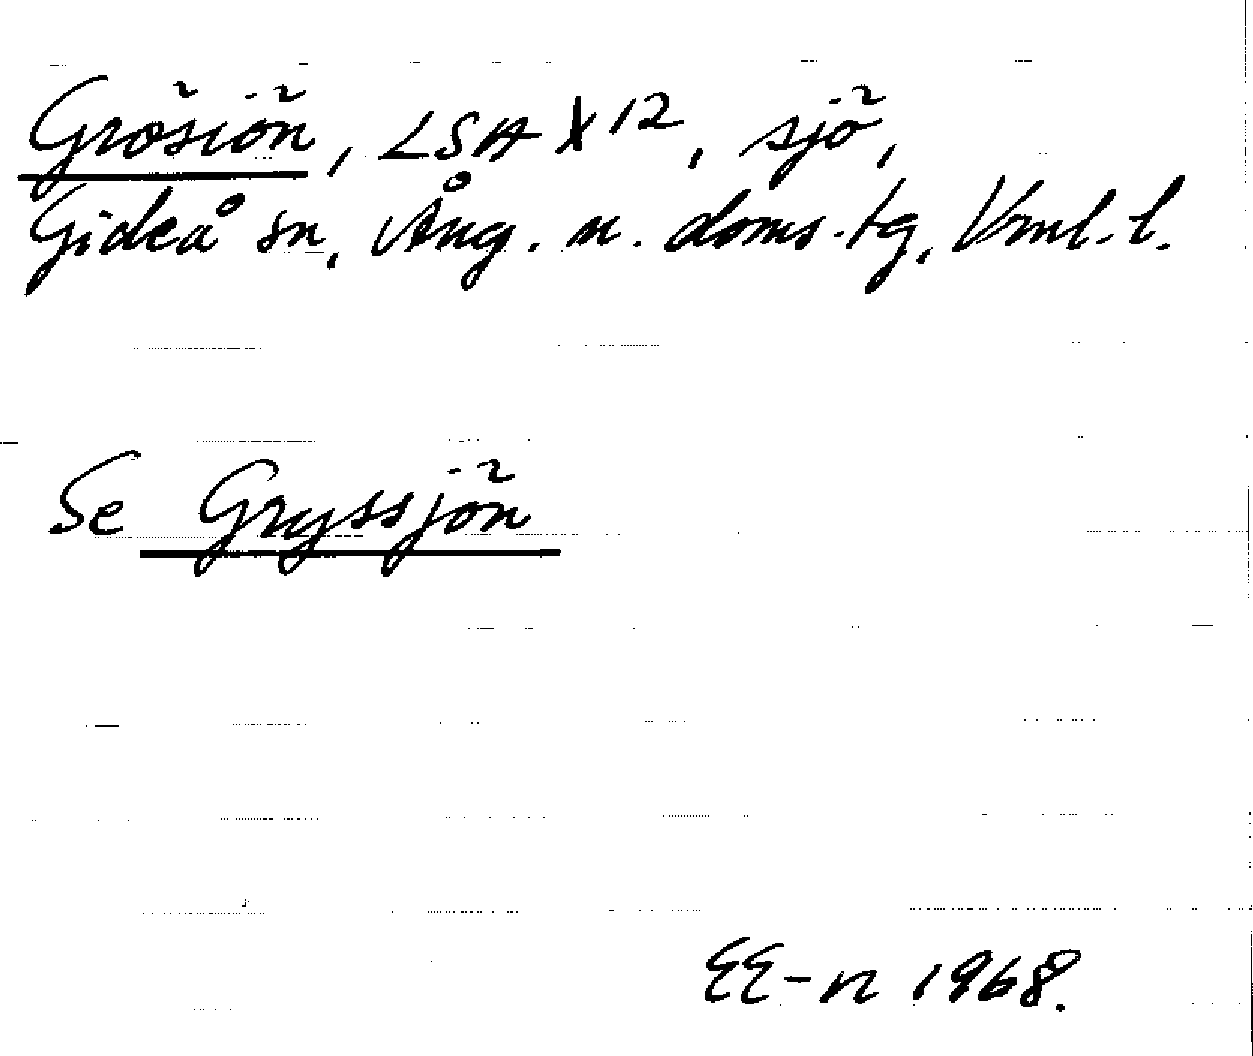 Grösiön, LSA X 12, sjö,
Gideå sn, Ång. n. doms.tg, Vml. l.
Se Gryssjön
EE-n 1968.